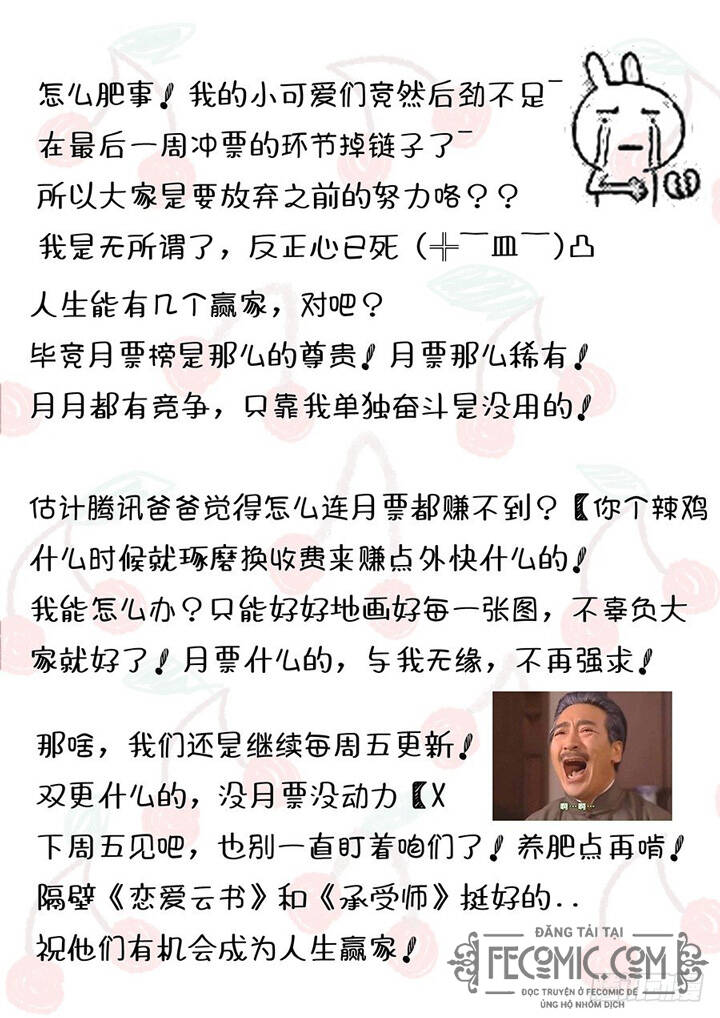 怎么肥事！我的小可爱们竟然后劲不足¯
在最后一周冲票的环节掉链子了¯
所以大家是要放弃之前的努力咯？？
我是无所谓了，反正心已死（╬￣皿￣)凸
人生能有几个赢家，对吧？
毕竟月票榜是那么的尊贵！月票那么稀有！
月月都有竞争，只靠我单独奋斗是没用的！
估计腾讯爸爸觉得怎么连月票都赚不到？【你个辣鸡
什么时候就琢磨换收费来赚点外快什么的！
我能怎么办？只能好好地画好每一张图，不辜负大
家就好了！月票什么的，与我无缘，不再强求！
那啥，我们还是继续每周五更新！
双更什么的，没月票没动力【X
啊…啊…
下周五见吧，也别一直盯着咱们了！养肥点再啃！
隔壁《恋爱云书》和《承受师》挺好的..
祝他们有机会成为人生赢家！
ĐĂNG TẢI TẠI
FECOMIC.COM
ĐỌC TRUYỆN Ở FECOMIC ĐỂ
ỦNG HỘ NHÓM DỊCH